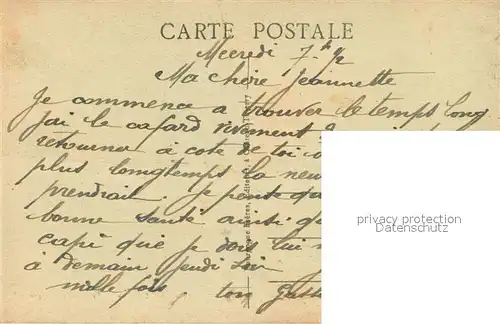 CARTE POSTALE
Mecredi 7h 1/2
Ma chère Jeannette
Je commence a trouver le temps long
jai le cafard vivement
retourner à coté de toi
plus longtemps la neu
prendrait. Je pense que
bonne santé ainsi que
capi que je dois lui
à demain jeudi soir
mille fois, ton
privacy protection
Datenschutz